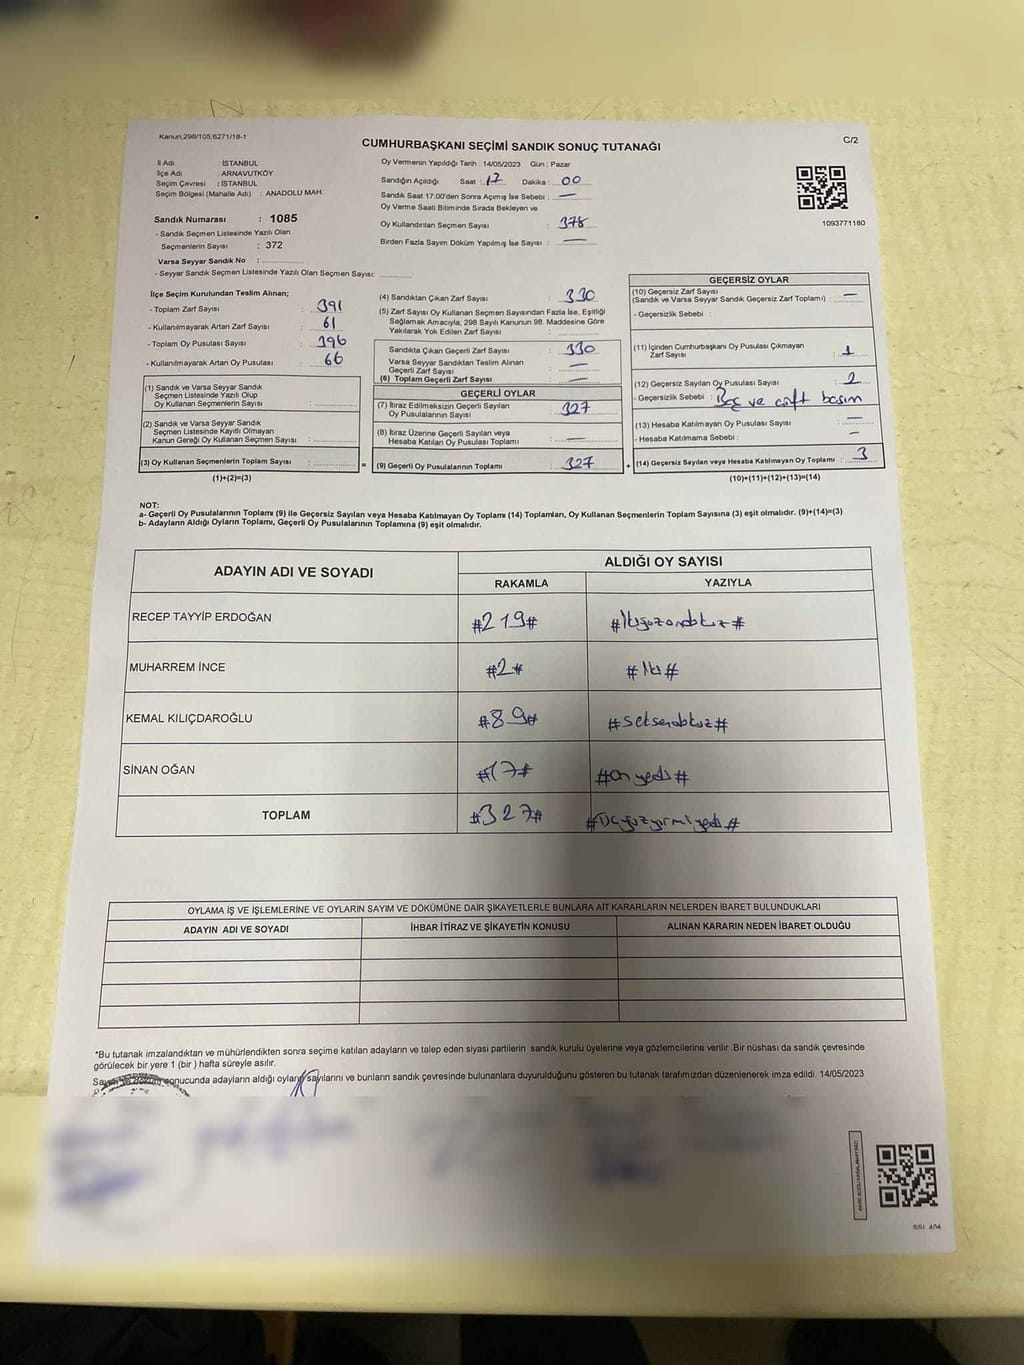 Kanun;298/105;6271/18-1
CUMHURBAŞKANI SEÇİMİ SANDIK SONUÇ TUTANAĞI
C/2
İl Adı : İSTANBUL
İlçe Adı : ARNAVUTKÖY
Seçim Çevresi : İSTANBUL
Seçim Bölgesi (Mahalle Adı) : ANADOLU MAH.
Sandık Numarası : 1085
- Sandık Seçmen Listesinde Yazılı Olan
Seçmenlerin Sayısı : 372
Varsa Seyyar Sandık No :
- Seyyar Sandık Seçmen Listesinde Yazılı Olan Seçmen Sayısı:
Oy Vermenin Yapıldığı Tarih : 14/05/2023 Gün : Pazar
Sandığın Açıldığı Saat : 17 Dakika : 00
Sandık Saat 17:00'den Sonra Açımış İse Sebebi : —
Oy Verme Saati Bitiminde Sırada Bekleyen ve
Oy Kullandırılan Seçmen Sayısı : 378
Birden Fazla Sayım Döküm Yapılmış İse Sayısı : —
1093771180
İlçe Seçim Kurulundan Teslim Alınan;
- Toplam Zarf Sayısı : 391
- Kullanılmayarak Artan Zarf Sayısı : 61
- Toplam Oy Pusulası Sayısı : 396
- Kullanılmayarak Artan Oy Pusulası : 66
(1) Sandık ve Varsa Seyyar Sandık
Seçmen Listesinde Yazılı Olup
Oy Kullanan Seçmenlerin Sayısı :
(2) Sandık ve Varsa Seyyar Sandık
Seçmen Listesinde Kayıtlı Olmayan
Kanun Gereği Oy Kullanan Seçmen Sayısı :
(3) Oy Kullanan Seçmenlerin Toplam Sayısı :
(1)+(2)=(3)
=
(4) Sandıktan Çıkan Zarf Sayısı : 330
(5) Zarf Sayısı Oy Kullanan Seçmen Sayısından Fazla İse, Eşitliği
Sağlamak Amacıyla; 298 Sayılı Kanunun 98. Maddesine Göre
Yakılarak Yok Edilen Zarf Sayısı :
Sandıkta Çıkan Geçerli Zarf Sayısı : 330
Varsa Seyyar Sandıktan Teslim Alınan
Geçerli Zarf Sayısı : —
(6) Toplam Geçerli Zarf Sayısı : —
GEÇERLİ OYLAR
(7) İtiraz Edilmeksizin Geçerli Sayılan
Oy Pusulalarının Sayısı : 327
(8) İtiraz Üzerine Geçerli Sayılan veya
Hesaba Katılan Oy Pusulası Toplamı : —
(9) Geçerli Oy Pusulalarının Toplamı : 327
+
GEÇERSİZ OYLAR
(10) Geçersiz Zarf Sayısı
(Sandık ve Varsa Seyyar Sandık Geçersiz Zarf Toplamı) : —
- Geçersizlik Sebebi :
(11) İçinden Cumhurbaşkanı Oy Pusulası Çıkmayan
Zarf Sayısı : 1
(12) Geçersiz Sayılan Oy Pusulası Sayısı : 2
- Geçersizlik Sebebi : Boş ve çift basım
(13) Hesaba Katılmayan Oy Pusulası Sayısı : —
- Hesaba Katılmama Sebebi : —
(14) Geçersiz Sayılan veya Hesaba Katılmayan Oy Toplamı : 3
(10)+(11)+(12)+(13)=(14)
NOT:
a- Geçerli Oy Pusulalarının Toplamı (9) ile Geçersiz Sayılan veya Hesaba Katılmayan Oy Toplamı (14) Toplamları, Oy Kullanan Seçmenlerin Toplam Sayısına (3) eşit olmalıdır. (9)+(14)=(3)
b- Adayların Aldığı Oyların Toplamı, Geçerli Oy Pusulalarının Toplamına (9) eşit olmalıdır.
ADAYIN ADI VE SOYADI
ALDIĞI OY SAYISI
RAKAMLA YAZIYLA
RECEP TAYYİP ERDOĞAN #219# #İkiyüzondokuz#
MUHARREM İNCE #2# #İki#
KEMAL KILIÇDAROĞLU #89# #seksendokuz#
SİNAN OĞAN #17# #on yedi#
TOPLAM #327# #üçyüzyirmiyedi#
OYLAMA İŞ VE İŞLEMLERİNE VE OYLARIN SAYIM VE DÖKÜMÜNE DAİR ŞİKAYETLERLE BUNLARA AİT KARARLARIN NELERDEN İBARET BULUNDUKLARI
ADAYIN ADI VE SOYADI İHBAR İTİRAZ VE ŞİKAYETİN KONUSU ALINAN KARARIN NEDEN İBARET OLDUĞU
*Bu tutanak imzalandıktan ve mühürlendikten sonra seçime katılan adayların ve talep eden siyasi partilerin sandık kurulu üyelerine veya gözlemcilerine verilir .Bir nüshası da sandık çevresinde
görülecek bir yere 1 (bir ) hafta süreyle asılır.
Sayım ve döküm sonucunda adayların aldığı oyların sayılarını ve bunların sandık çevresinde bulunanlara duyurulduğunu gösteren bu tutanak tarafımızdan düzenlenerek imza edildi. 14/05/2023